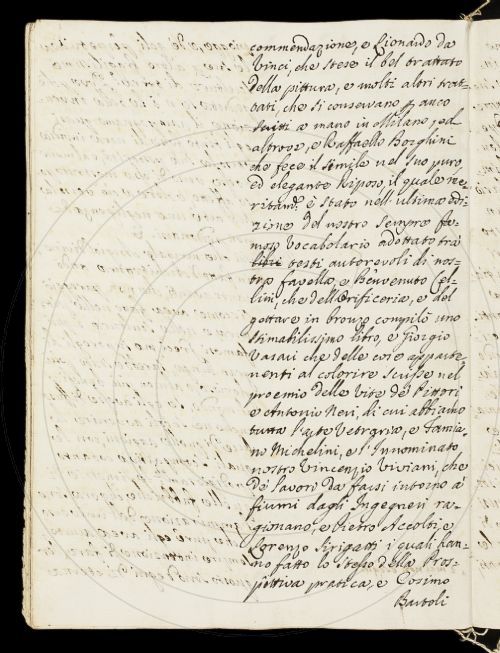 commendazione, e Lionardo da
Vinci, che stese il bel trattato
della pittura, e molti altri trat=
tati, che si conservano anco
scritti a mano in Milano, ed
altrove, e Raffaello Borghini
che fece il simile nel suo puro,
ed elegante Riposo, il quale me=
ritam.e è stato nell'ultima edi=
zione del nostro sempre fa=
moso Vocabolario adottato trà
testi autorevoli di nos=
tra favella, e Benvenuto Cel=
lini, che dell'Orificeria, e del
gettare in bronzo compilò uno
stimabilissimo libro, e Giorgio
Vasari che delle cose apparte=
nenti al colorire scrisse nel
proemio delle Vite de' Pittori
e Antonio Neri, di cui abbiamo
tutta l'arte Vetraria, e Famia=
no Michelini, e l'Innominato
nostro Vincenzio Viviani, che
de' lavori da farsi intorno a'
fiumi dagli Ingegneri ra=
gionano, e Pietro Accolti, e
Lorenzo Sirigatti i quali han=
no fatto lo stesso della Pros=
pettiva pratica, e Cosimo
Bartoli